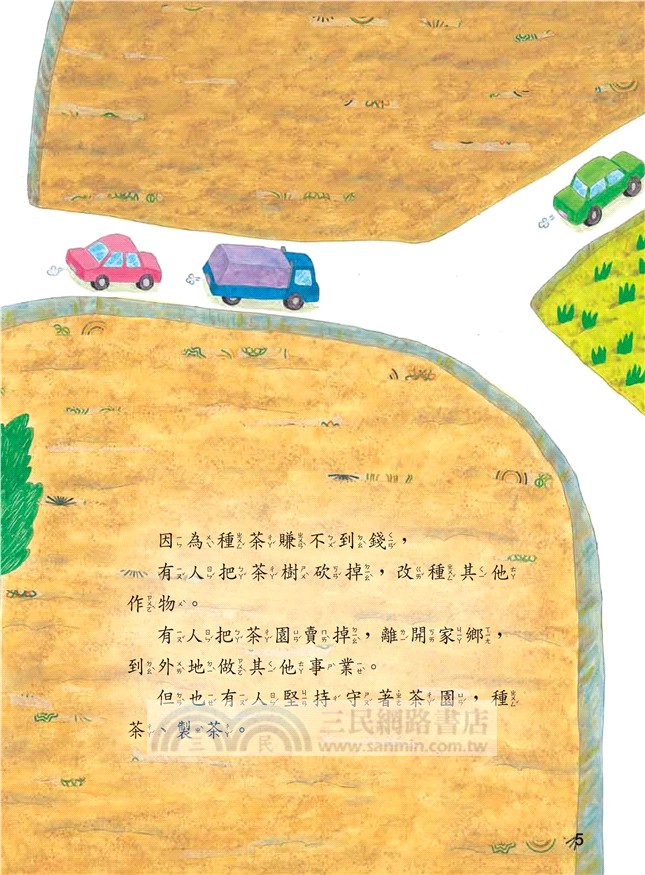 因為種茶賺不到錢，
有人把茶樹砍掉，改種其他
作物。
有人把茶園賣掉，離開家鄉，
到外地做其他事業。
但也有人堅持守著茶園，種
茶、製茶。
三民網路書店
三民
www.sanmin.com.tw
5